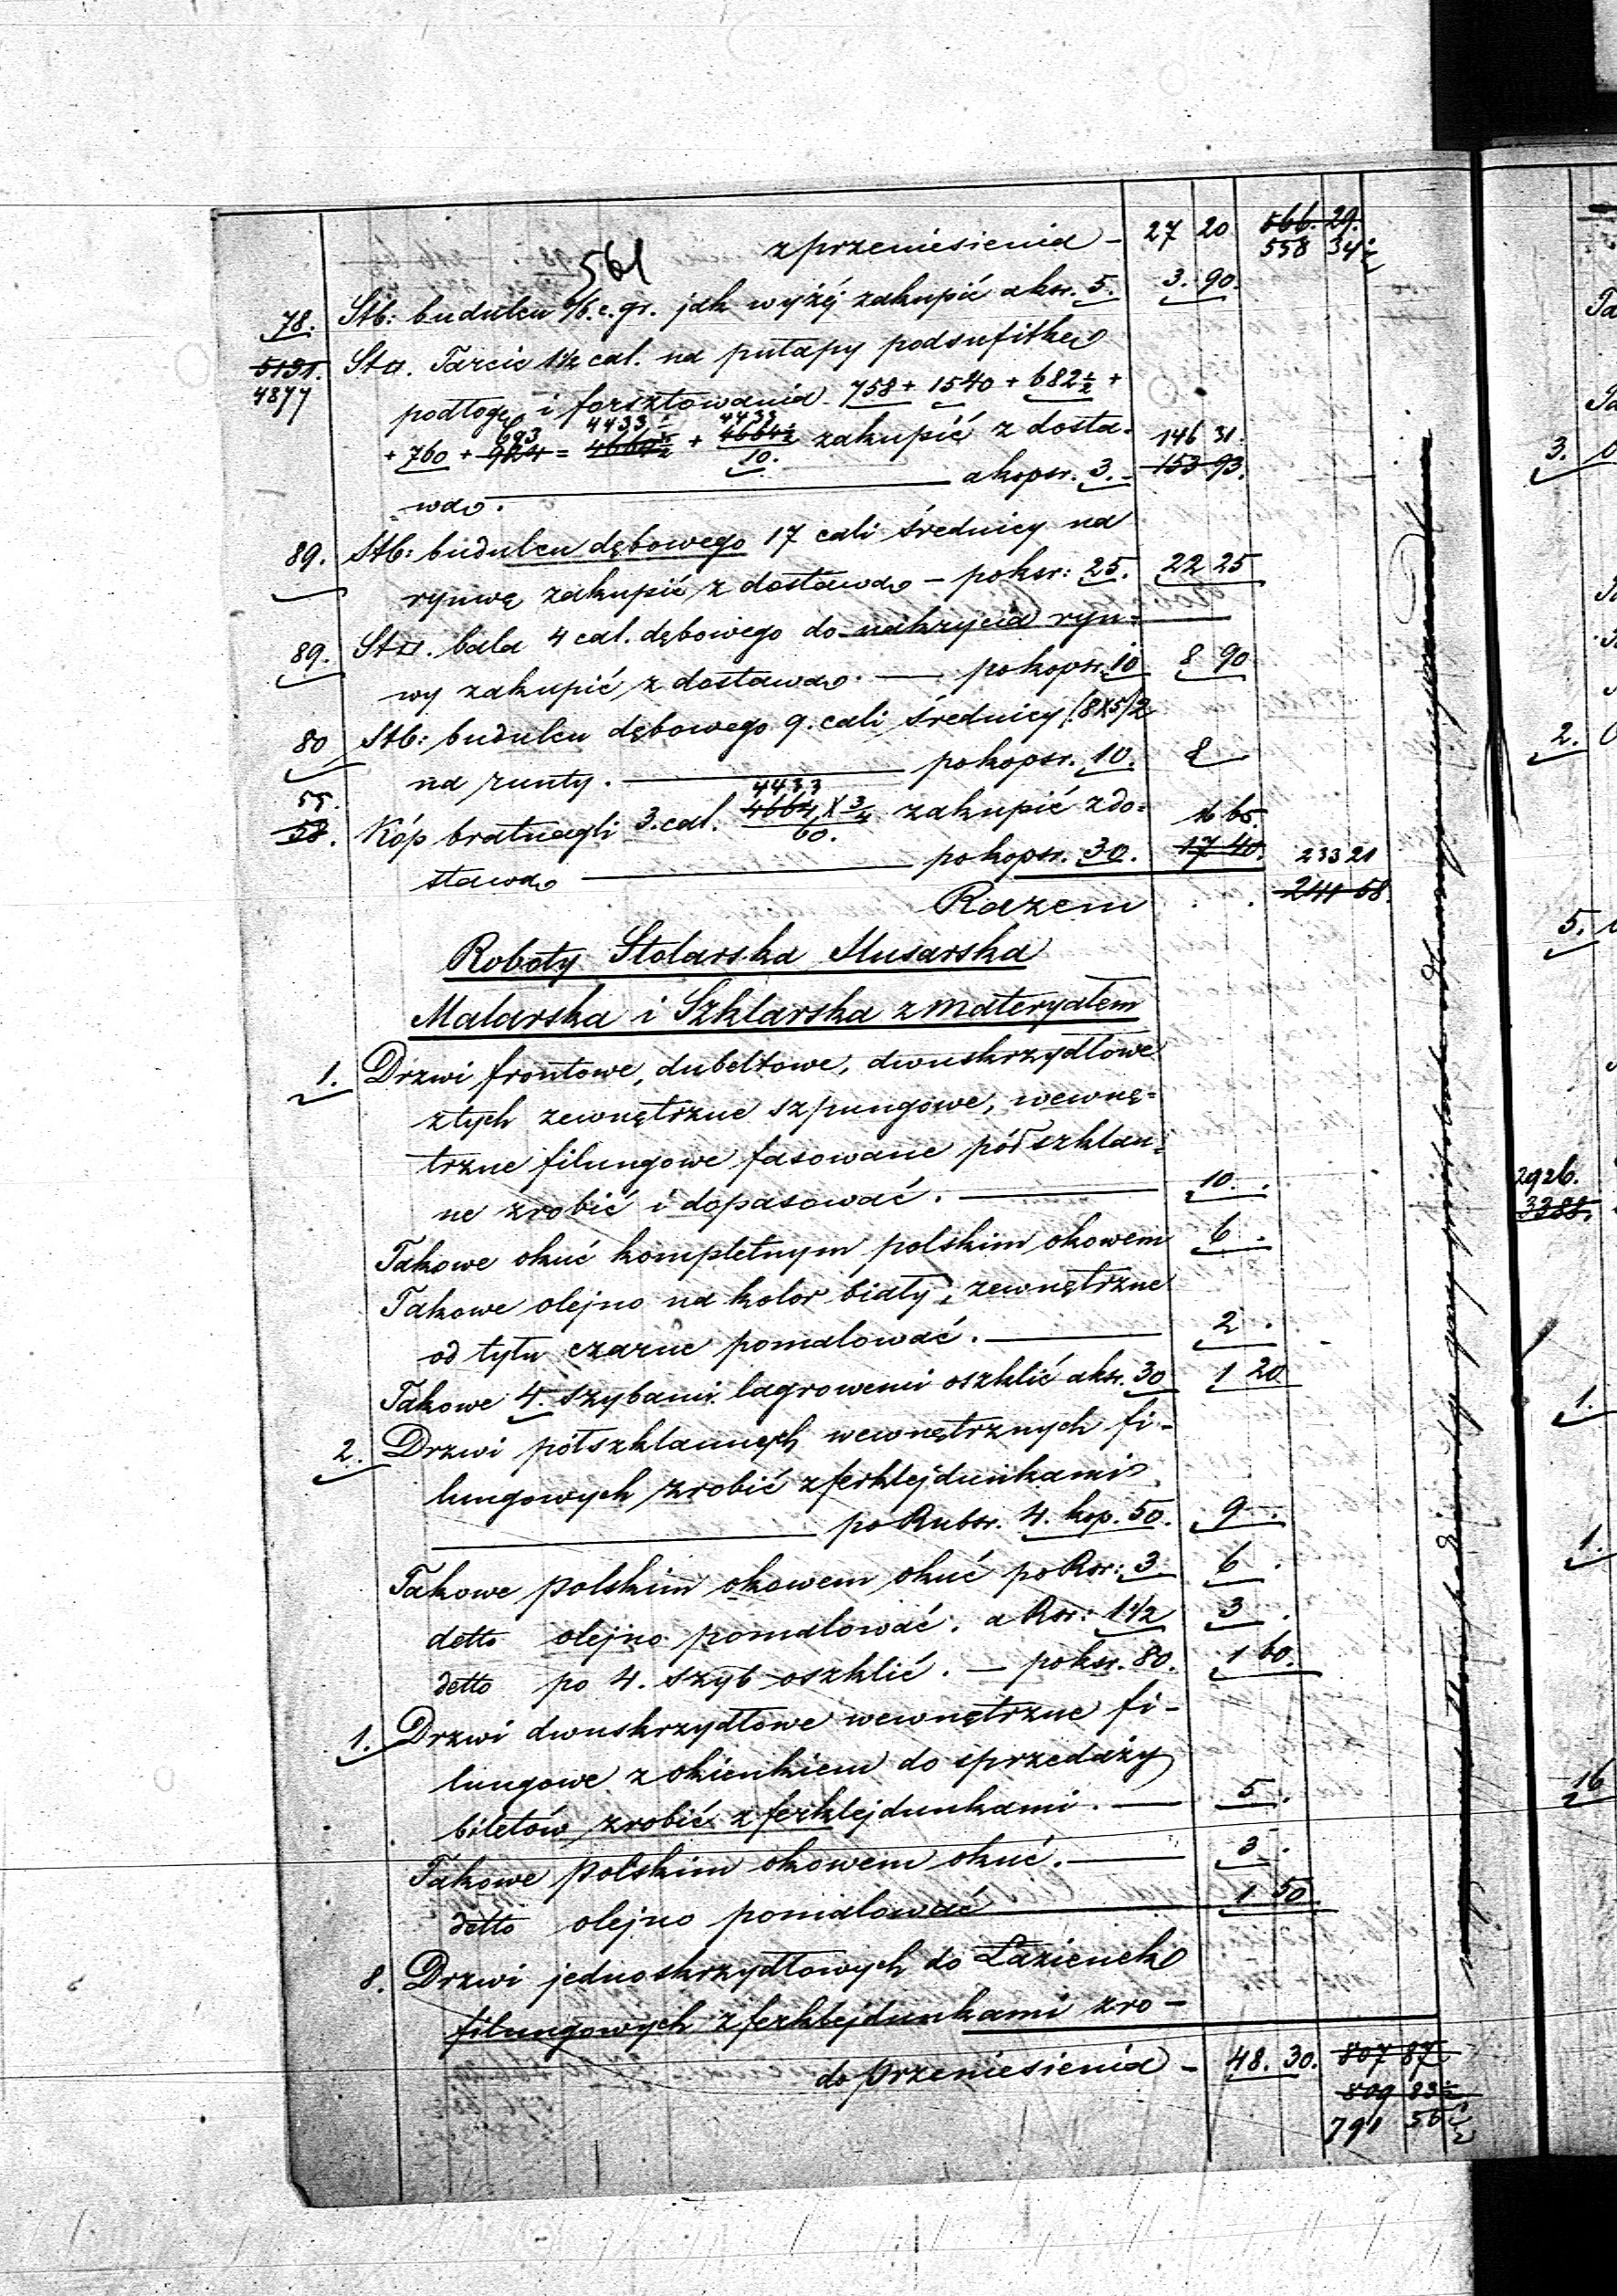 z przeniesienia – 27 20 566. 29.
561 558 34½
78. Stb: budulcu 6/6. c. gr. jak wyżéj zakupić a ksr. 5. 3. 90.
5131. St□. Tarcic 1½ cal. na pułapy podsufitkę
4877 podłogę i forsztowania 758 + 1540 + 682½ +
693 4433½ 4433
+ 760 + 924 = 4664½ + 4664½ zakupić z dosta- 146 31.
10. 153 93.
wą. a kopsr. 3. –
89. Stb: budulcu dębowego 17 cali średnicy na
rynwę zakupić z dostawą – po ksr: 25. 22 25
89. St□. bala 4 cal. dębowego do nakrycia ryn-
wy zakupić z dostawą. — po kopsr. 10 8 90
80 Stb: budulcu dębowego 9. cali średnicy (8×5)2
na runty. po kopsr. 10. 8 –
55. 4433
58. Kóp bratnagli 3. cal. 4664 × ¾ zakupić z do= 16 65.
60.
stawą po kopsr. 30. 17 40. 233 21
Razem . . 241 58.
Roboty Stolarska Slusarska
Malarska i Szklarska z materyałem
1. Drzwi frontowe, dubeltowe, dwuskrzydłowe
z tych zewnętrzne szpungowe, wewnę=
trzne filungowe fasowane pół szklan=
ne zrobić i dopasować. 10. .
Takowe okuć kompletnym polskim okowem 6 .
Takowe olejno na kolor biały, zewnętrzne
od tyłu czarne pomalować. 2 .
Takowe 4. szybami lagrowemi oszklić a ksr. 30 1 20
2. Drzwi półszklannych wewnętrznych fi-
lungowych zrobić z ferklejdunkami
po Rubsr. 4. kop. 50. 9 – .
Takowe polskim okowem okuć po Rsr: 3. 6 .
detto olejno pomalować. a Rsr: 1½ 3 .
detto po 4. szyb oszklić. — po ksr. 80. 1 60.
1. Drzwi dwuskrzydłowe wewnętrzne fi-
lungowe z okienkiem do sprzedaży
biletów zrobić z ferklejdunkami. 5 .
Takowe polskim okowem okuć. 3 .
detto olejno pomalować 1 50
8. Drzwi jednoskrzydłowych do Łazienek
filungowych z ferklejdunkami zro-
do przeniesienia – 48. 30. 807 87
809 83½
791 55½
3.
2.
5.
2926.
3388.
1.
1.
16